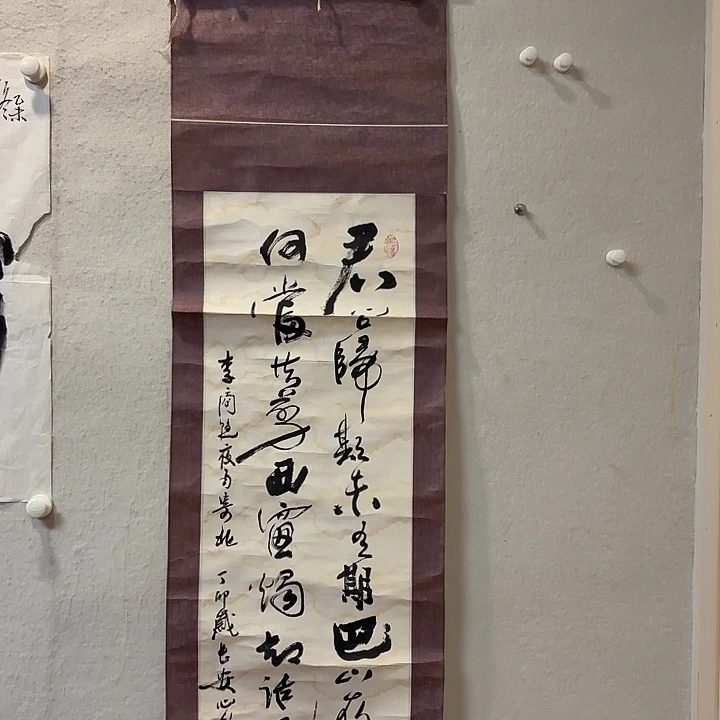 君问歸期未有期巴山夜
何當共剪西窗燭却話
李商隐夜雨寄北 丁卯歲長安心